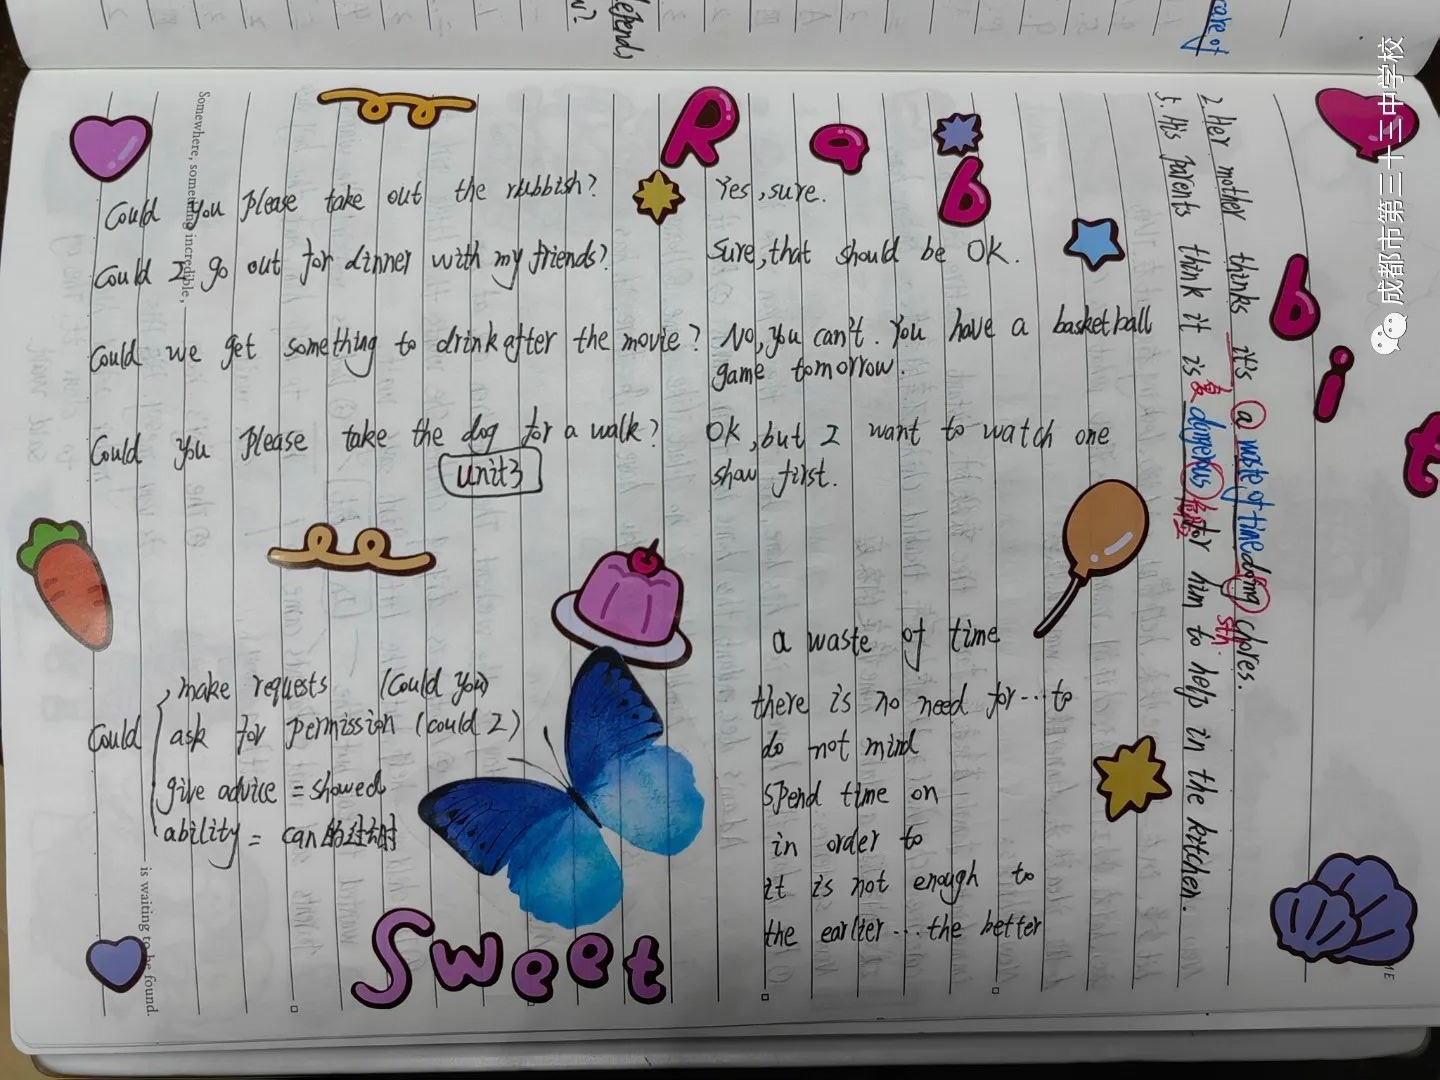 Could you please take out the rubbish? Yes, sure.
Could I go out for dinner with my friends? Sure, that should be OK.
Could we get something to drink after the movie? No, you can't. You have a basketball
game tomorrow.
Could you please take the dog for a walk? OK, but I want to watch one
show first.
unit3
Could
make requests (Could you)
ask for permission (could I)
give advice = showed
ability = can的过去时
a waste of time
there is no need for...to
do not mind
spend time on
in order to
it is not enough to
the earlier...the better
2. Her mother thinks it's a waste of time doing chores.
sth
3. His parents think it is dangerous for him to help in the kitchen.
Somewhere, something incredible,
is waiting to be found.
Rabbit
Sweet
care of
depends
成都市第三十三中学校